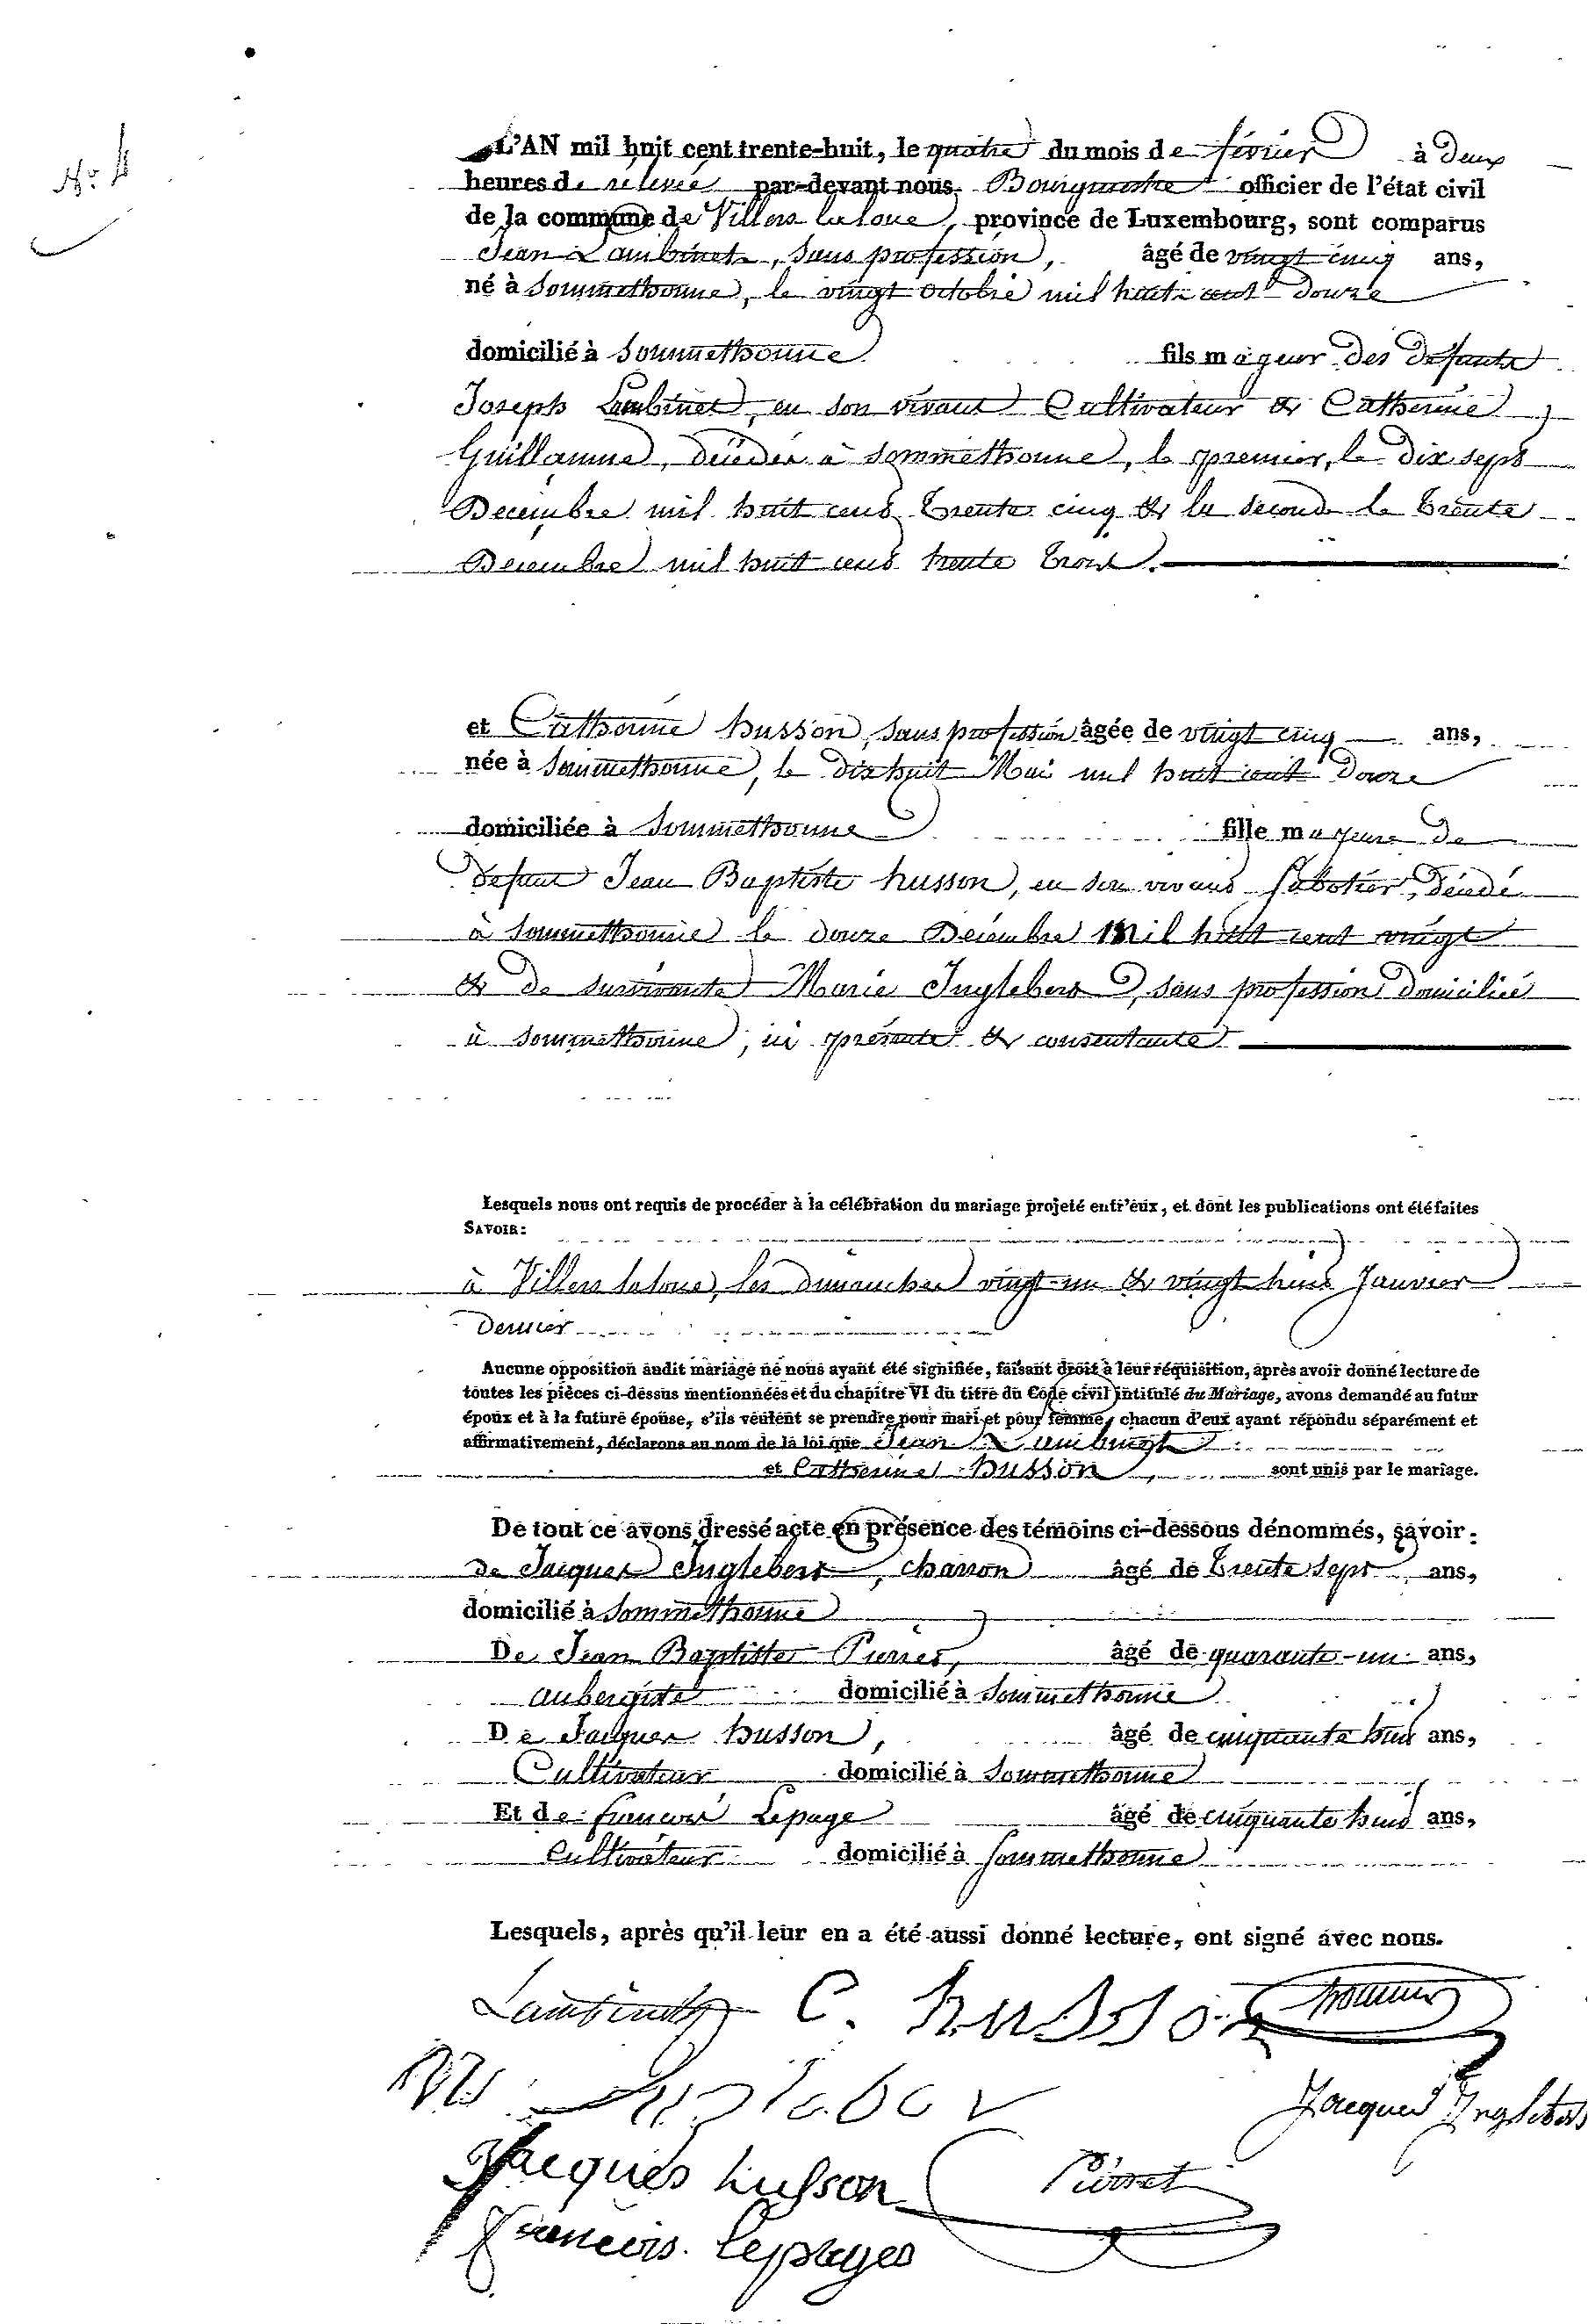 N.° 4
L'AN mil huit cent trente-huit, le quatre du mois de février à deux
heures de relevée par-devant nous Bourgmestre officier de l'état civil
de la commune de Villers laloue, province de Luxembourg, sont comparus
Jean Lambinet, sans profession, âgé de vingt cinq ans,
né à Sommethonne, le vingt octobre mil huit cent douze
domicilié à Sommethonne fils majeur des défunts
Joseph Lambinet, en son vivant Cultivateur & Catherine
Guillaume, décédés à Sommethonne, le premier, le dix sept
Décembre mil huit cent trente cinq & la seconde le trente
Décembre mil huit cent trente trois.
et Catherine husson, sans profession âgée de vingt cinq ans,
née à Sommethonne, le dix huit Mai mil huit cent douze
domiciliée à Sommethonne fille majeure de
défunt Jean Baptiste husson, en son vivant Sabotier, décédé
à Sommethonne le douze Décembre mil huit cent vingt
& de survivante Marie Inglebert, sans profession domiciliée
à Sommethonne, ici présente & consentante
Lesquels nous ont requis de procéder à la célébration du mariage projeté entr'eux, et dont les publications ont été faites
SAVOIR:
à Villers laloue, les dimanches vingt-un & vingt huit Janvier
dernier
Aucune opposition audit mariage ne nous ayant été signifiée, faisant droit à leur réquisition, après avoir donné lecture de
toutes les pièces ci-dessus mentionnées et du chapitre VI du titre du Code civil intitulé du Mariage, avons demandé au futur
époux et à la future épouse, s'ils veulent se prendre pour mari et pour femme, chacun d'eux ayant répondu séparément et
affirmativement, déclarons au nom de la loi que Jean Lambinet
et Catherine husson, sont unis par le mariage.
De tout ce avons dressé acte en présence des témoins ci-dessous dénommés, savoir:
de Jacques Inglebert, charron âgé de trente sept ans,
domicilié à Sommethonne
De Jean Baptiste Pierret, âgé de quarante-un ans,
aubergiste domicilié à Sommethonne
De Jacques husson, âgé de cinquante huit ans,
Cultivateur domicilié à Sommethonne
Et de françois Lepage âgé de cinquante huit ans,
cultivateur domicilié à Sommethonne
Lesquels, après qu'il leur en a été aussi donné lecture, ont signé avec nous.
Lambinet C. husson
Jacques Inglebert
Jacques husson Pierret
françois lepage